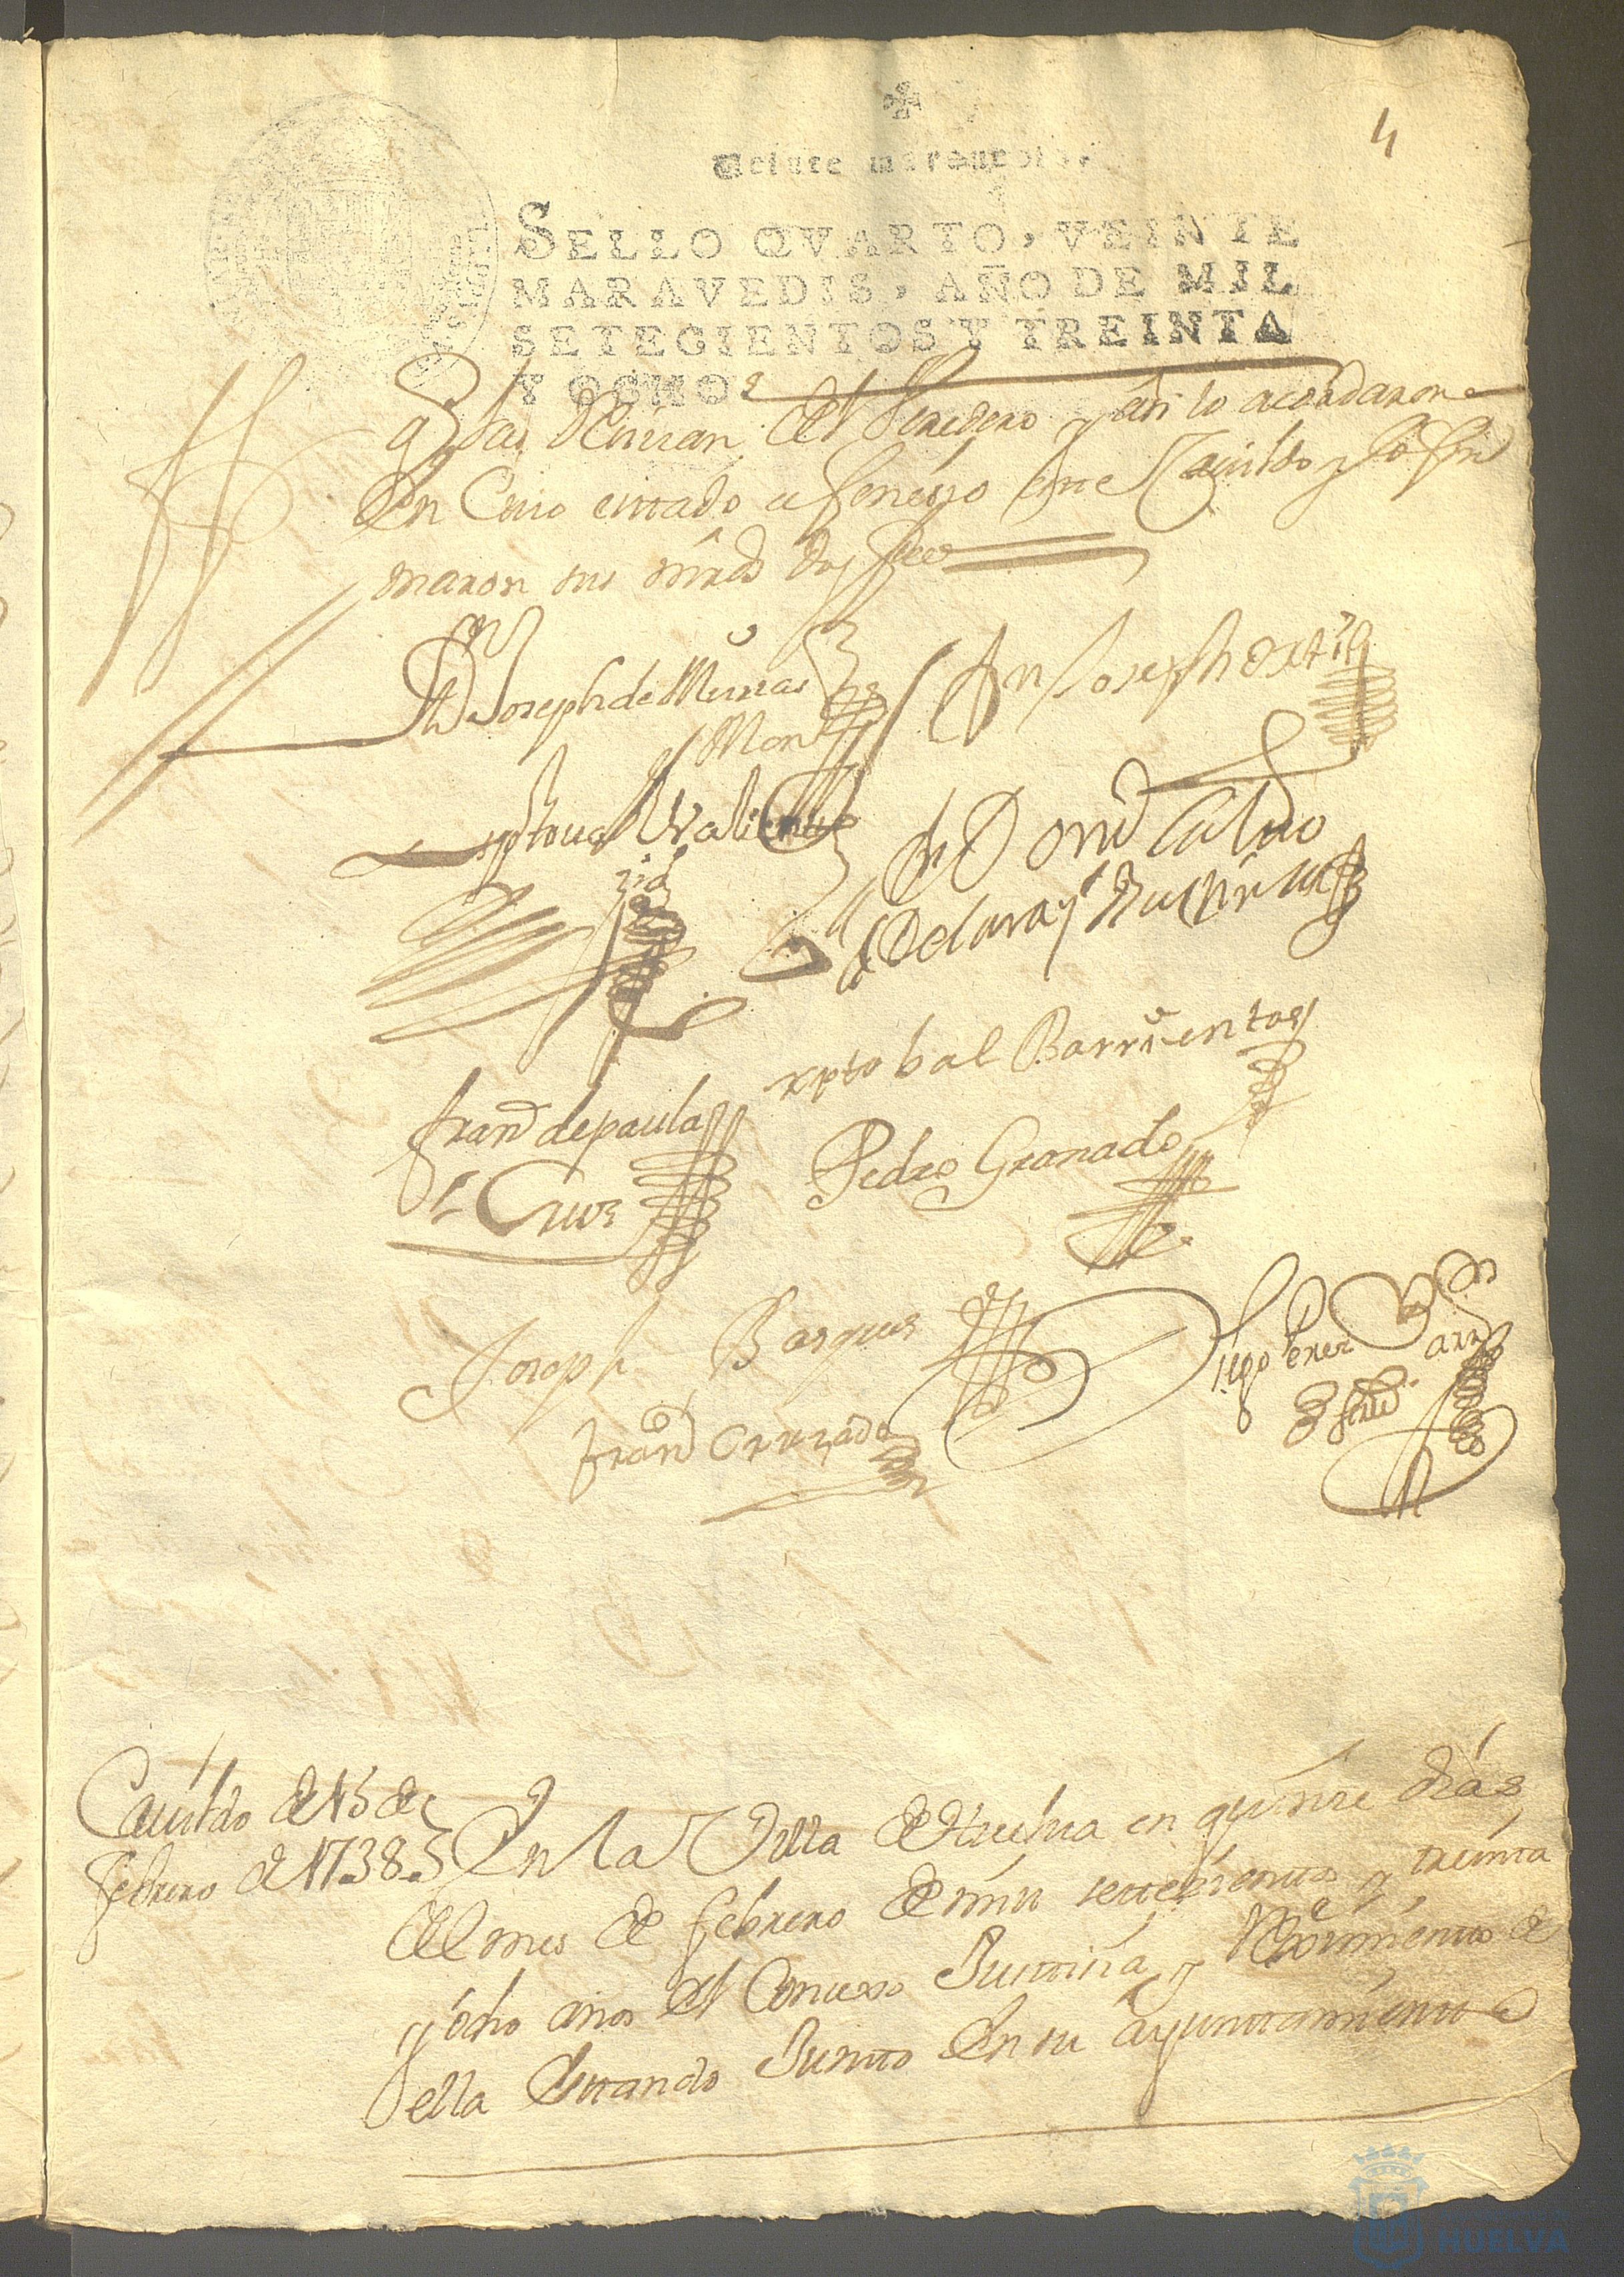 4
Veinte marauedis.
SELLO QVARTO, VEINTE
MARAVEDIS, AÑO DE MIL
SETECIENTOS Y TREINTA
Y OCHO
q las del Veredero y asi lo acordaron
En Cuio estado se fenesio este Cauildo y lo fir
maron sus mrds doy fee
Joseph de Murias
Mon
Joseph ortiz
xptoual Valiente
Dn Domo Caluo
De lara y
xptobal Barrientos
frando de paula
la Cruz
Pedro Granado
Joseph Basques
Diego Perez
frando Cruzado
Cauildo de 15 de
febrero de 1738
En la Villa de Huelua en quinse dias
del mes de febrero de mill settesientos y treinta
y ocho años el Consexo Justicia y Reximiento de
ella Estando Junto En su ayuntamiento
HUELVA